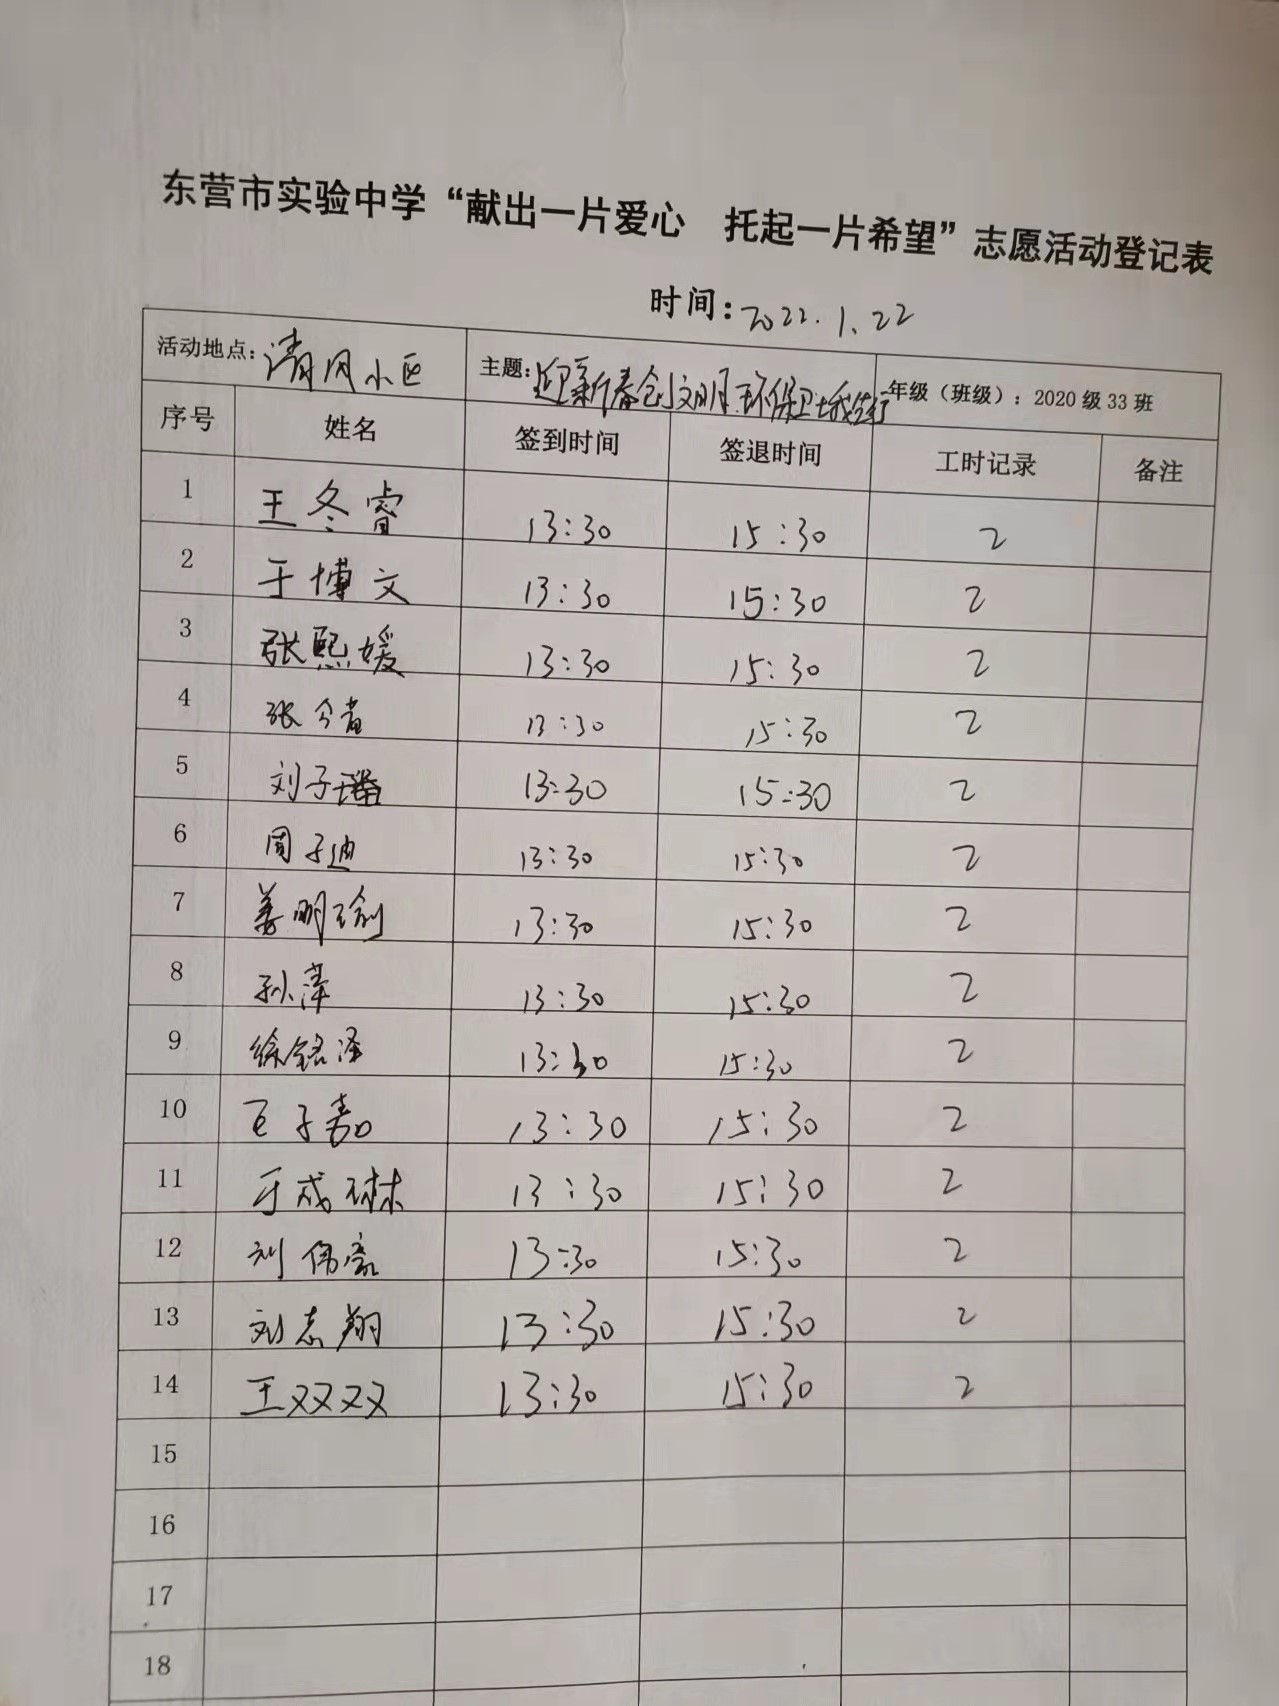 东营市实验中学“献出一片爱心 托起一片希望”志愿活动登记表
时间:2022.1.22
活动地点:清风小区 主题:迎新春创文明环保卫士我先行 年级（班级）: 2020级33班
序号 姓名 签到时间 签退时间 工时记录 备注
1 王冬睿 13:30 15:30 2
2 于博文 13:30 15:30 2
3 张熙媛 13:30 15:30 2
4 张 13:30 15:30 2
5 刘子璠 13:30 15:30 2
6 周子迪 13:30 15:30 2
7 姜明瑜 13:30 15:30 2
8 孙萍 13:30 15:30 2
9 徐铭泽 13:30 15:30 2
10 王子嘉 13:30 15:30 2
11 于成琳 13:30 15:30 2
12 刘伟 13:30 15:30 2
13 刘志翔 13:30 15:30 2
14 王双双 13:30 15:30 2
15
16
17
18